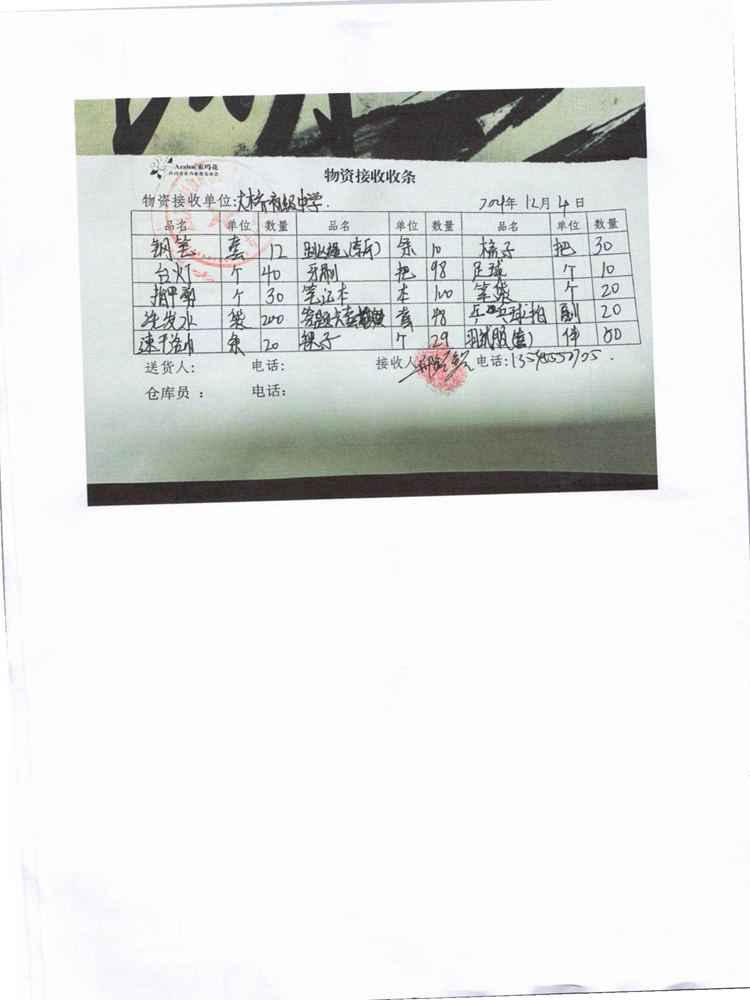 Azalea 索玛花
物资接收收条
物资接收单位: 高级中学. 2024年12月4日
品名 单位 数量 品名 单位 数量 品名 单位 数量
钢笔 套 12 跳绳 条 10 梳子 把 30
台灯 个 40 牙刷 把 98 足球 个 10
指甲剪 个 30 笔记本 本 100 笔袋 个 20
洗发水 袋 200 套 98 乒乓球拍 副 20
速干浴巾 条 20 个 29 件 50
送货人: 电话: 接收人: 电话:
仓库员 : 电话: